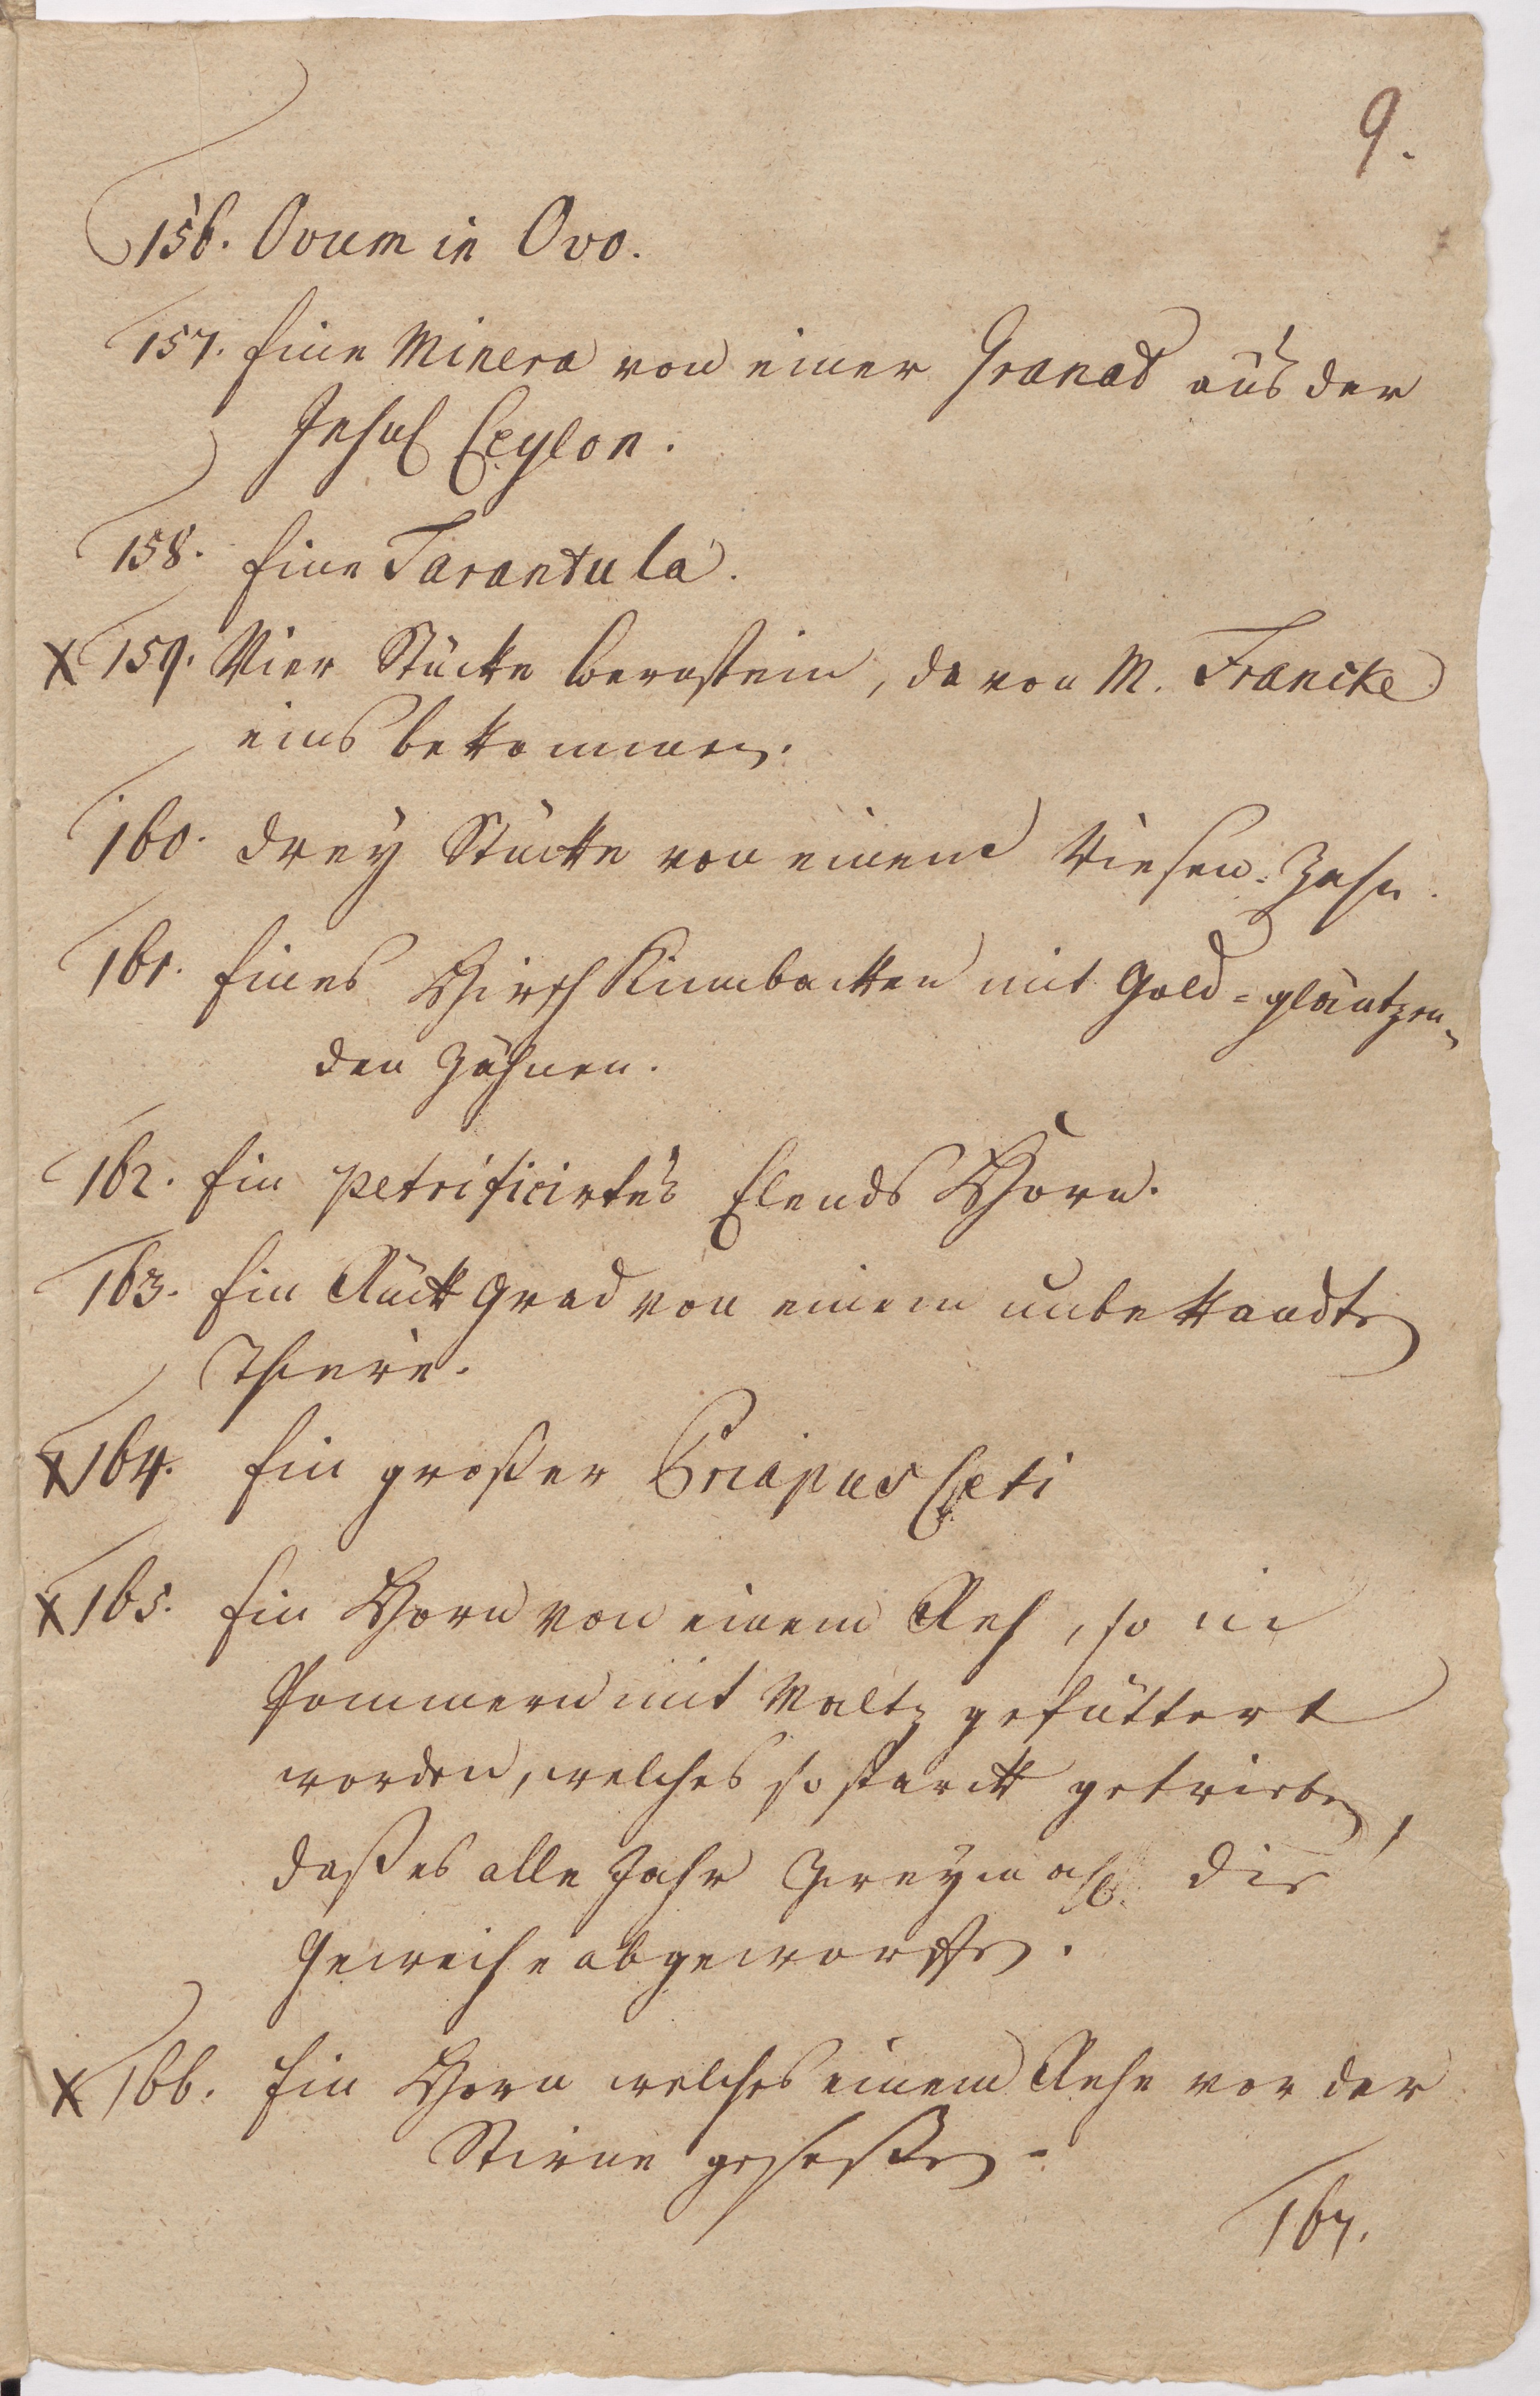 9.
156. Ovum in Ovo.
157. Eine Minera von einer Granat aus der
Insul Ceylon.
158. Eine Tarantula.
X 159. Vier Stücke Bernstein, da von M. Francke
eins bekommen.
160. Drey Stücke von einem Riesen-Zahn.
161. Eines Hirsch Kinnbacken mit Gold-gläntzen-
den Zähnen.
162. Ein petrificirtes Elends Horn.
163. Ein Rück Grad von einem unbekandten
Thiere.
X 164. Ein großer Priapus Ceti
X 165. Ein Horn von einem Reh, so in
Pommern mit Maltz gefüttert
worden, welches so starck getrieben,
daß es alle Jahr zweymahl die
Geweihe abgeworffen.
X 166. Ein Horn welches einem Rehe vor der
Stirne geseßen.
167.